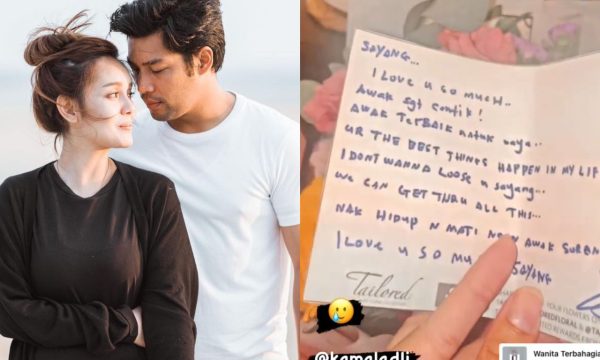 SAYANG...
I LOVE U SO MUCH..
AWAK SGT CANTIK!
AWAK TERBAIK UNTUK SAYA..
UR THE BEST THINGS HAPPEN IN MY LIF
I DONT WANNA LOOSE U SAYANG...
WE CAN GET THRU ALL THIS...
NAK HIDUP N MATI AWAK
I LOVE U SO MU SAYANG
Tailored
YOUR FLOWERS
@kamaladli
Wanita Terbahagia